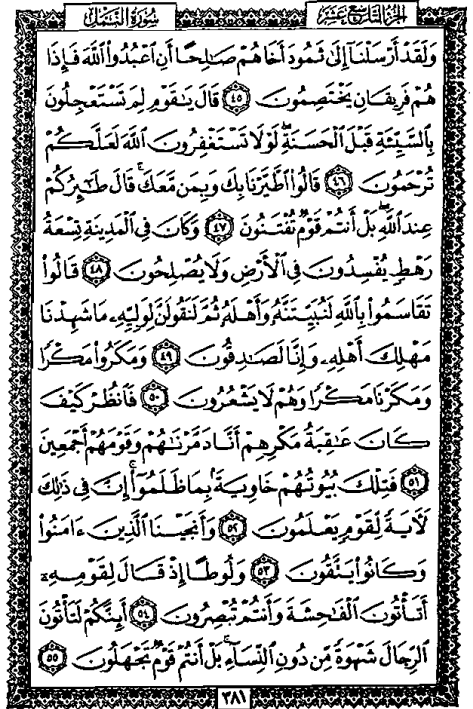 الجُزْءُ التَّاسِعَ عَشَرَ
سُورَةُ النَّمْلِ
وَلَقَدْ أَرْسَلْنَآ إِلَىٰ ثَمُودَ أَخَاهُمْ صَٰلِحًا أَنِ ٱعْبُدُوا۟ ٱللَّهَ فَإِذَا
هُمْ فَرِيقَانِ يَخْتَصِمُونَ ٤٥ قَالَ يَٰقَوْمِ لِمَ تَسْتَعْجِلُونَ
بِٱلسَّيِّئَةِ قَبْلَ ٱلْحَسَنَةِ ۖ لَوْلَا تَسْتَغْفِرُونَ ٱللَّهَ لَعَلَّكُمْ
تُرْحَمُونَ ٤٦ قَالُوا۟ ٱطَّيَّرْنَا بِكَ وَبِمَن مَّعَكَ ۚ قَالَ طَٰٓئِرُكُمْ
عِندَ ٱللَّهِ ۖ بَلْ أَنتُمْ قَوْمٌ تُفْتَنُونَ ٤٧ وَكَانَ فِى ٱلْمَدِينَةِ تِسْعَةُ
رَهْطٍ يُفْسِدُونَ فِى ٱلْأَرْضِ وَلَا يُصْلِحُونَ ٤٨ قَالُوا۟
تَقَاسَمُوا۟ بِٱللَّهِ لَنُبَيِّتَنَّهُۥ وَأَهْلَهُۥ ثُمَّ لَنَقُولَنَّ لِوَلِيِّهِۦ مَا شَهِدْنَا
مَهْلِكَ أَهْلِهِۦ وَإِنَّا لَصَٰدِقُونَ ٤٩ وَمَكَرُوا۟ مَكْرًا
وَمَكَرْنَا مَكْرًا وَهُمْ لَا يَشْعُرُونَ ٥٠ فَٱنظُرْ كَيْفَ
كَانَ عَٰقِبَةُ مَكْرِهِمْ أَنَّا دَمَّرْنَٰهُمْ وَقَوْمَهُمْ أَجْمَعِينَ
٥١ فَتِلْكَ بُيُوتُهُمْ خَاوِيَةًۢ بِمَا ظَلَمُوٓا۟ ۗ إِنَّ فِى ذَٰلِكَ
لَءَايَةً لِّقَوْمٍ يَعْلَمُونَ ٥٢ وَأَنجَيْنَا ٱلَّذِينَ ءَامَنُوا۟
وَكَانُوا۟ يَتَّقُونَ ٥٣ وَلُوطًا إِذْ قَالَ لِقَوْمِهِۦٓ
أَتَأْتُونَ ٱلْفَٰحِشَةَ وَأَنتُمْ تُبْصِرُونَ ٥٤ أَئِنَّكُمْ لَتَأْتُونَ
ٱلرِّجَالَ شَهْوَةً مِّن دُونِ ٱلنِّسَآءِ ۚ بَلْ أَنتُمْ قَوْمٌ تَجْهَلُونَ ٥٥
٣٨١